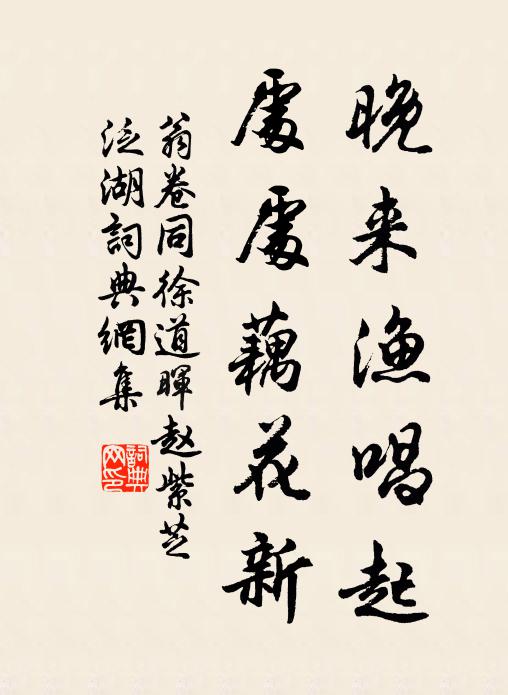 晚来渔唱起
處處藕花新
翁卷同徐道暉赵紫芝
泛湖詞典網集
詞典网印